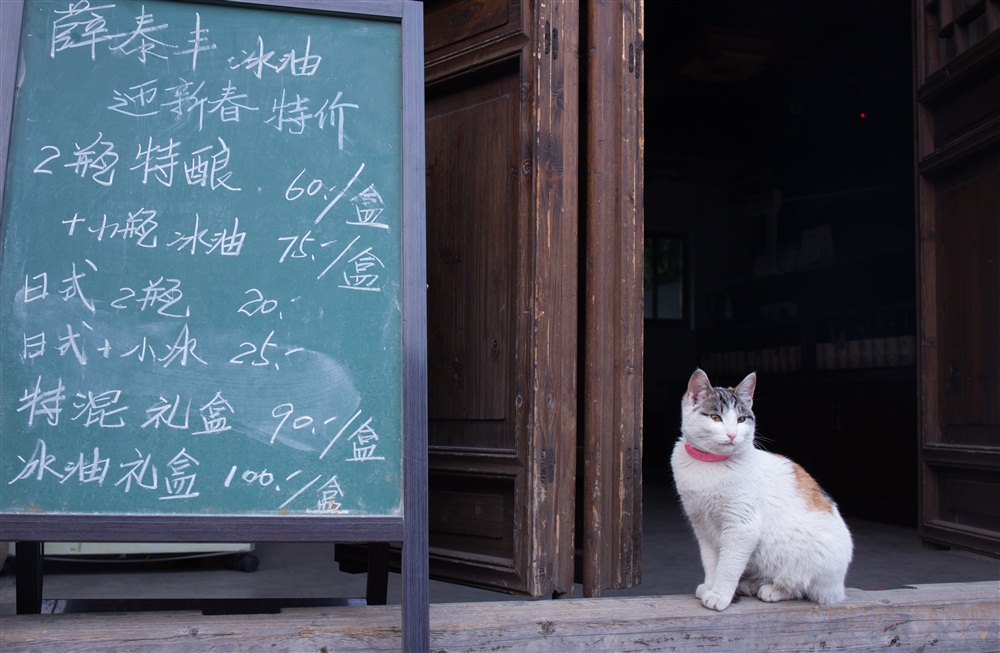 薛泰丰 冰油
迎新春 特价
2瓶 特酿 60.-/盒
+小瓶 冰油 75.-/盒
日式 2瓶 20.-
日式+小冰 25.-
特混 礼盒 90.-/盒
冰油礼盒 100.-/盒